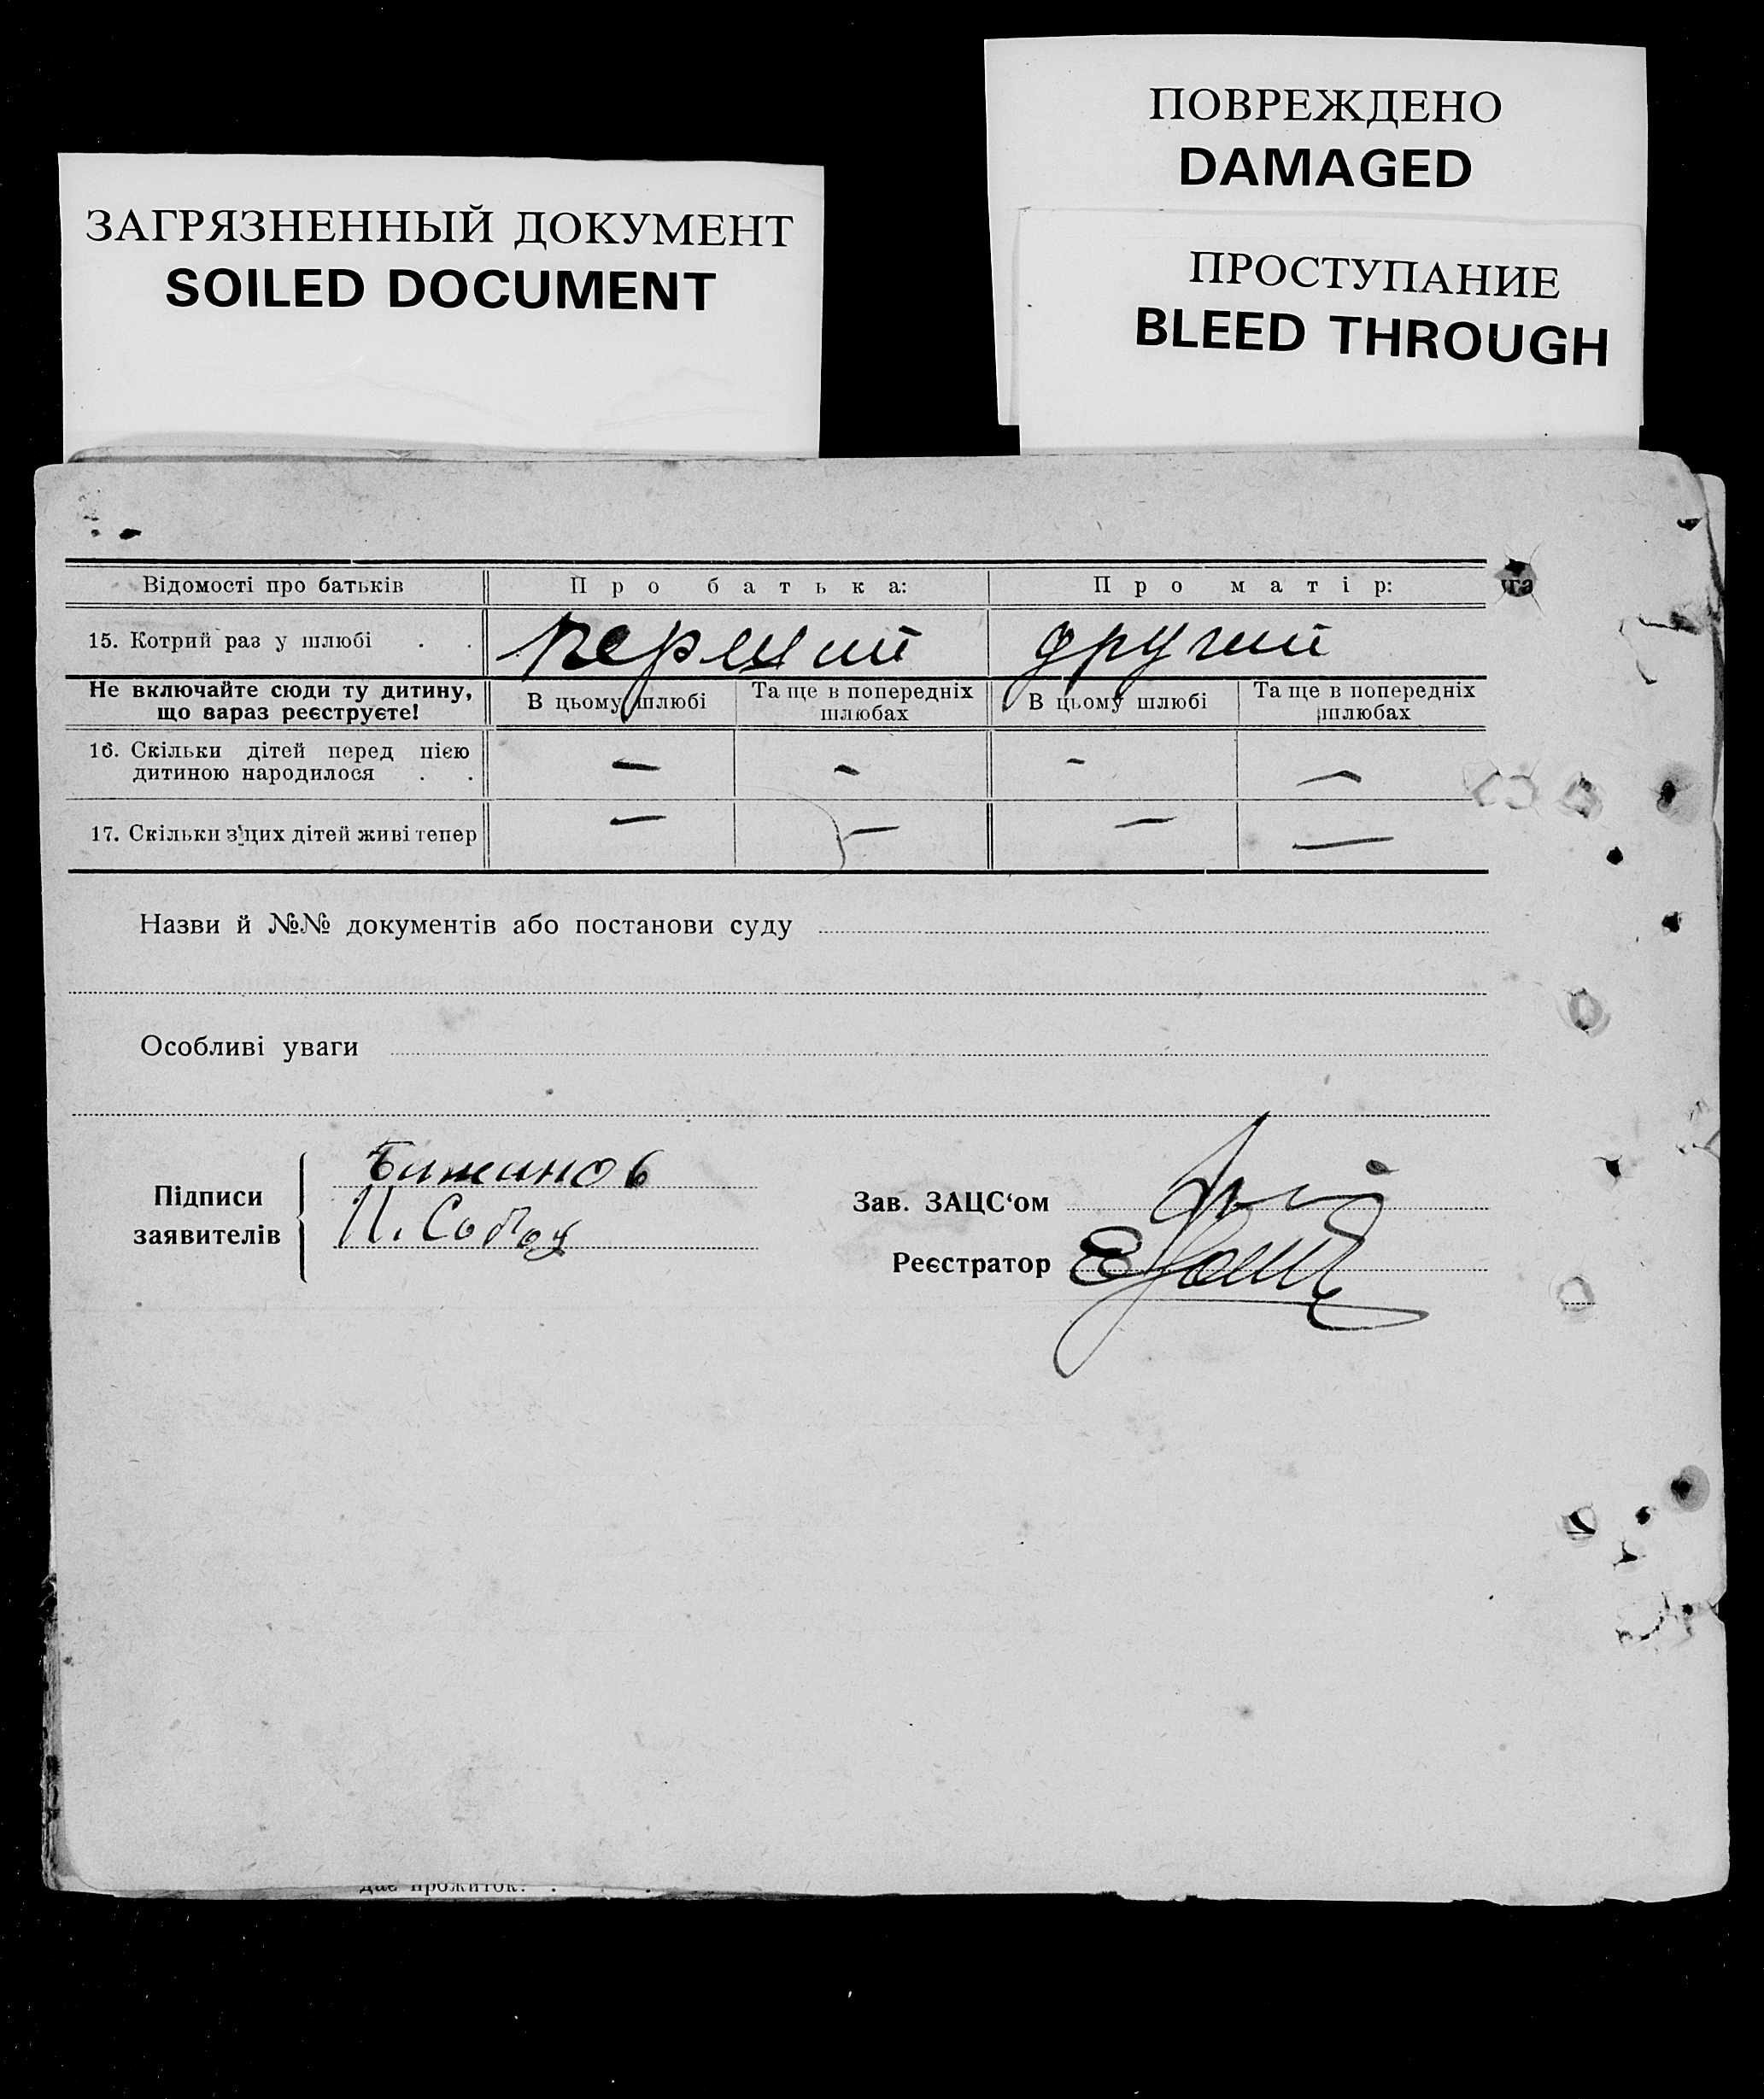 ПОВРЕЖДЕНО
DAMAGED
ЗАГРЯЗНЕННЫЙ ДОКУМЕНТ
SOILED DOCUMENT
ПРОСТУПАНИЕ
BLEED THROUGH
Відомості про батьків Про батька: Про матір:
15. Котрий раз у шлюбі . . перший другий
Не включайте сюди ту дитину, що вараз реєструєте! В цьому шлюбі Та ще в попередніх шлюбах В цьому шлюбі Та ще в попередніх шлюбах
16. Скільки дітей перед цією
дитиною народилося . . — - - —
17. Скільки з цих дітей живі тепер — — — —
Назви й №№ документів або постанови суду
Особливі уваги
Підписи
заявителів
Зав. ЗАЦС‘ом
Реєстратор
дає прожиток. .